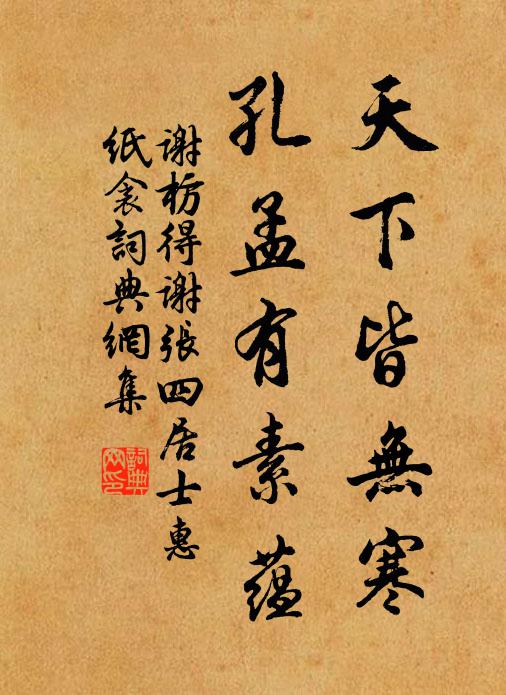 天下皆無寒
孔孟有素蕴
謝枋得謝張四居士惠
紙衾詞典網集
詞典網印